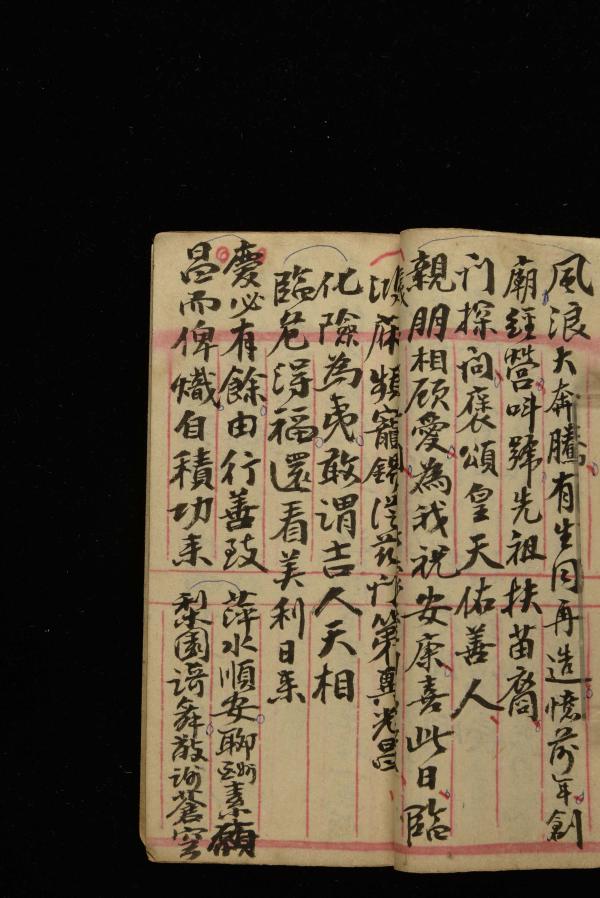 風浪大奔騰有生同再造憶前年創
廟經營叫號先祖扶苗裔
刊探向褒頌皇天佑善人
親朋相顾愛為我祝安康喜此日臨
麻頻寵錫從茲第真光昌
化險為夷敢謂吉人天相
臨危得福還看美利日來
慶必有餘由行善致
昌而俾熾自積功来
萍水順安聊酬素願
梨園語舞敬謝蒼空